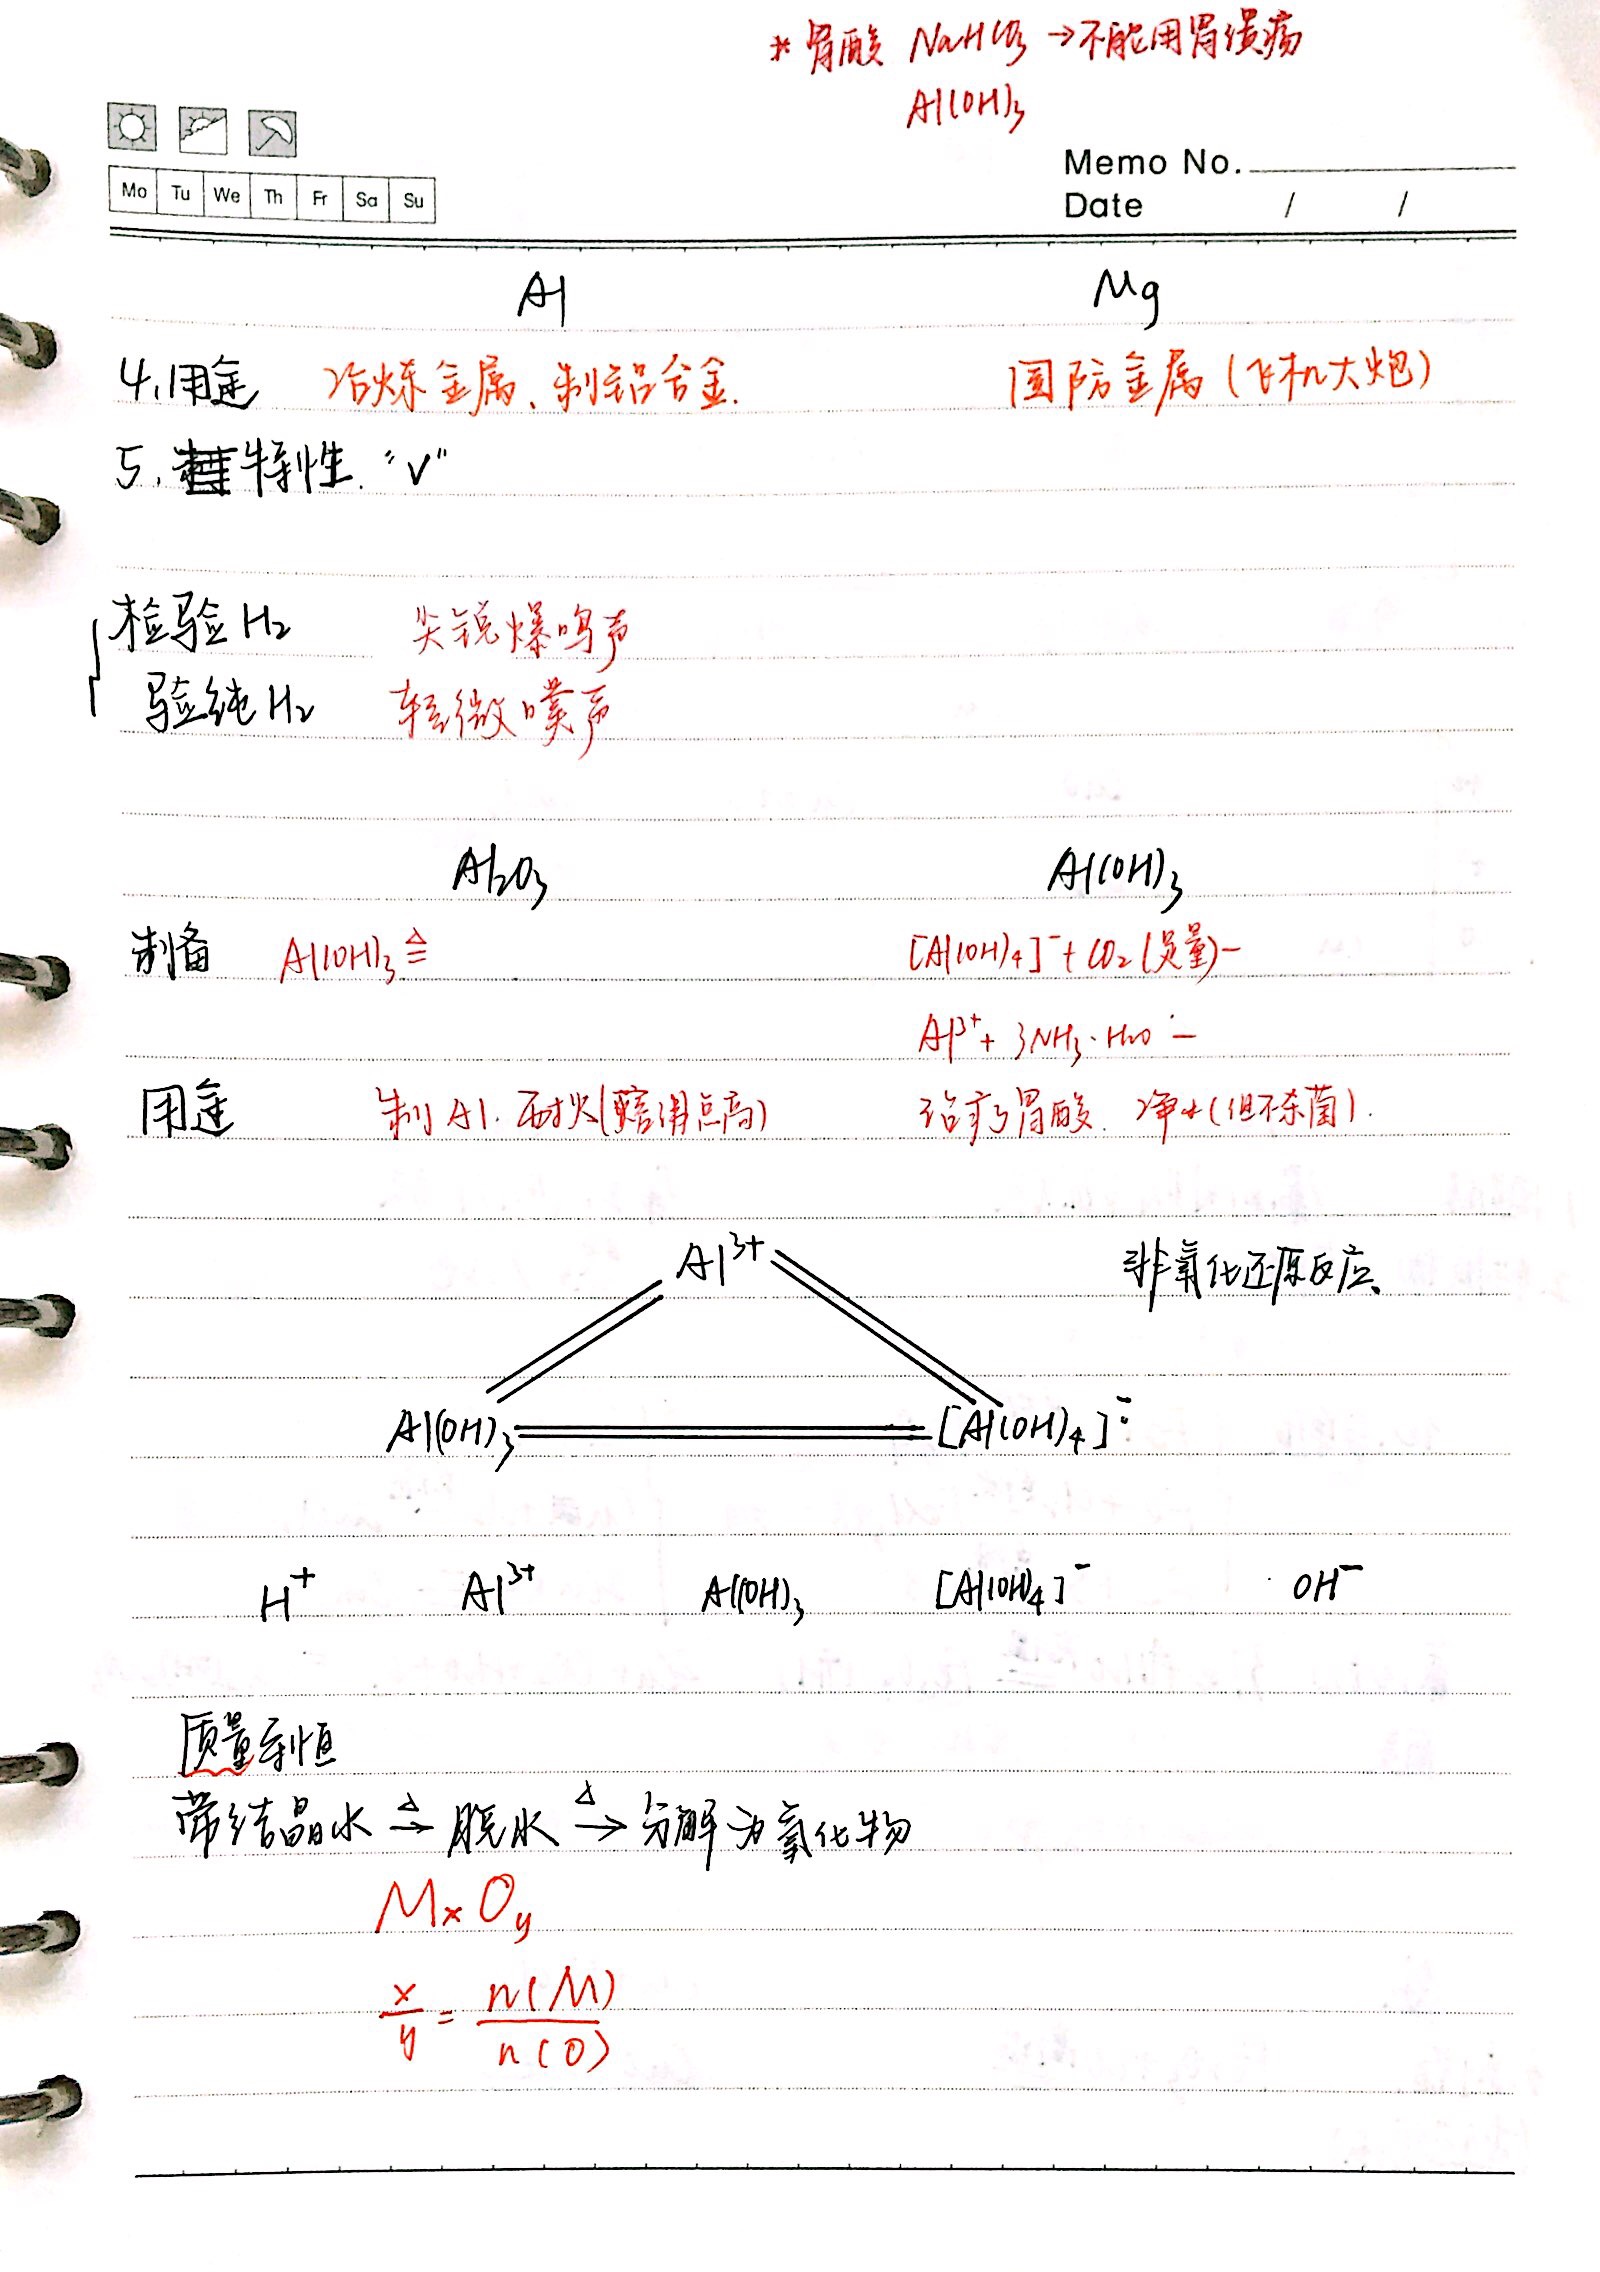 * 胃酸 NaHCO₃ → 不能用胃溃疡
Al(OH)₃
Mo Tu We Th Fr Sa Su
Memo No.
Date / /
Al Mg
4.用途 冶炼金属、制铝合金. 国防金属(飞机大炮)
5. 特性. "V"
检验H₂ 尖锐爆鸣声
验纯H₂ 轻微噗声
Al₂O₃ Al(OH)₃
制备 Al(OH)₃ ≜ [Al(OH)₄]⁻ + CO₂(足量) —
Al³⁺ + 3NH₃·H₂O —
用途 制Al. 耐火(熔沸点高) 治疗胃酸. 净水(但不杀菌).
Al³⁺ 非氧化还原反应
Al(OH)₃ [Al(OH)₄]⁻
H⁺ Al³⁺ Al(OH)₃ [Al(OH)₄]⁻ OH⁻
质量守恒
带结晶水 △→ 脱水 △→ 分解为氧化物
MₓOᵧ
x/y = n(M)/n(O)